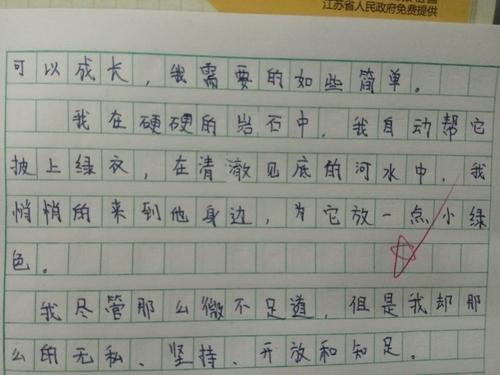 江苏省人民政府免费提供
可以成长，我需要的如些简单。
我在硬硬的岩石中，我自动帮它
披上绿衣，在清澈见底的河水中，我
悄悄的来到他身边，为它放一点小绿
色。
我尽管那么微不足道，但是我却那
么的无私、坚持、开放和知足。